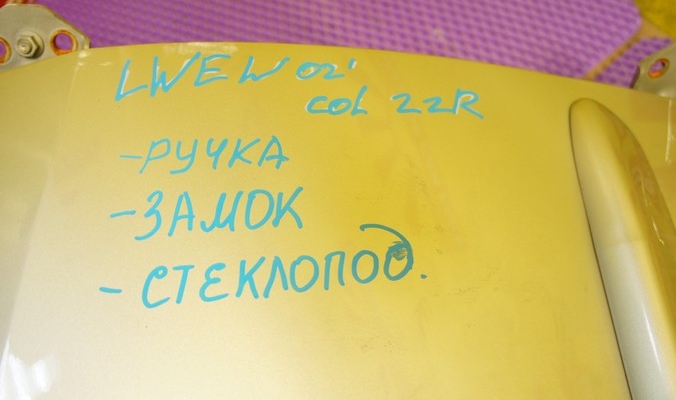 LWEW 02'
COL 22R
-РУЧКА
-ЗАМОК
- СТЕКЛОПОД.